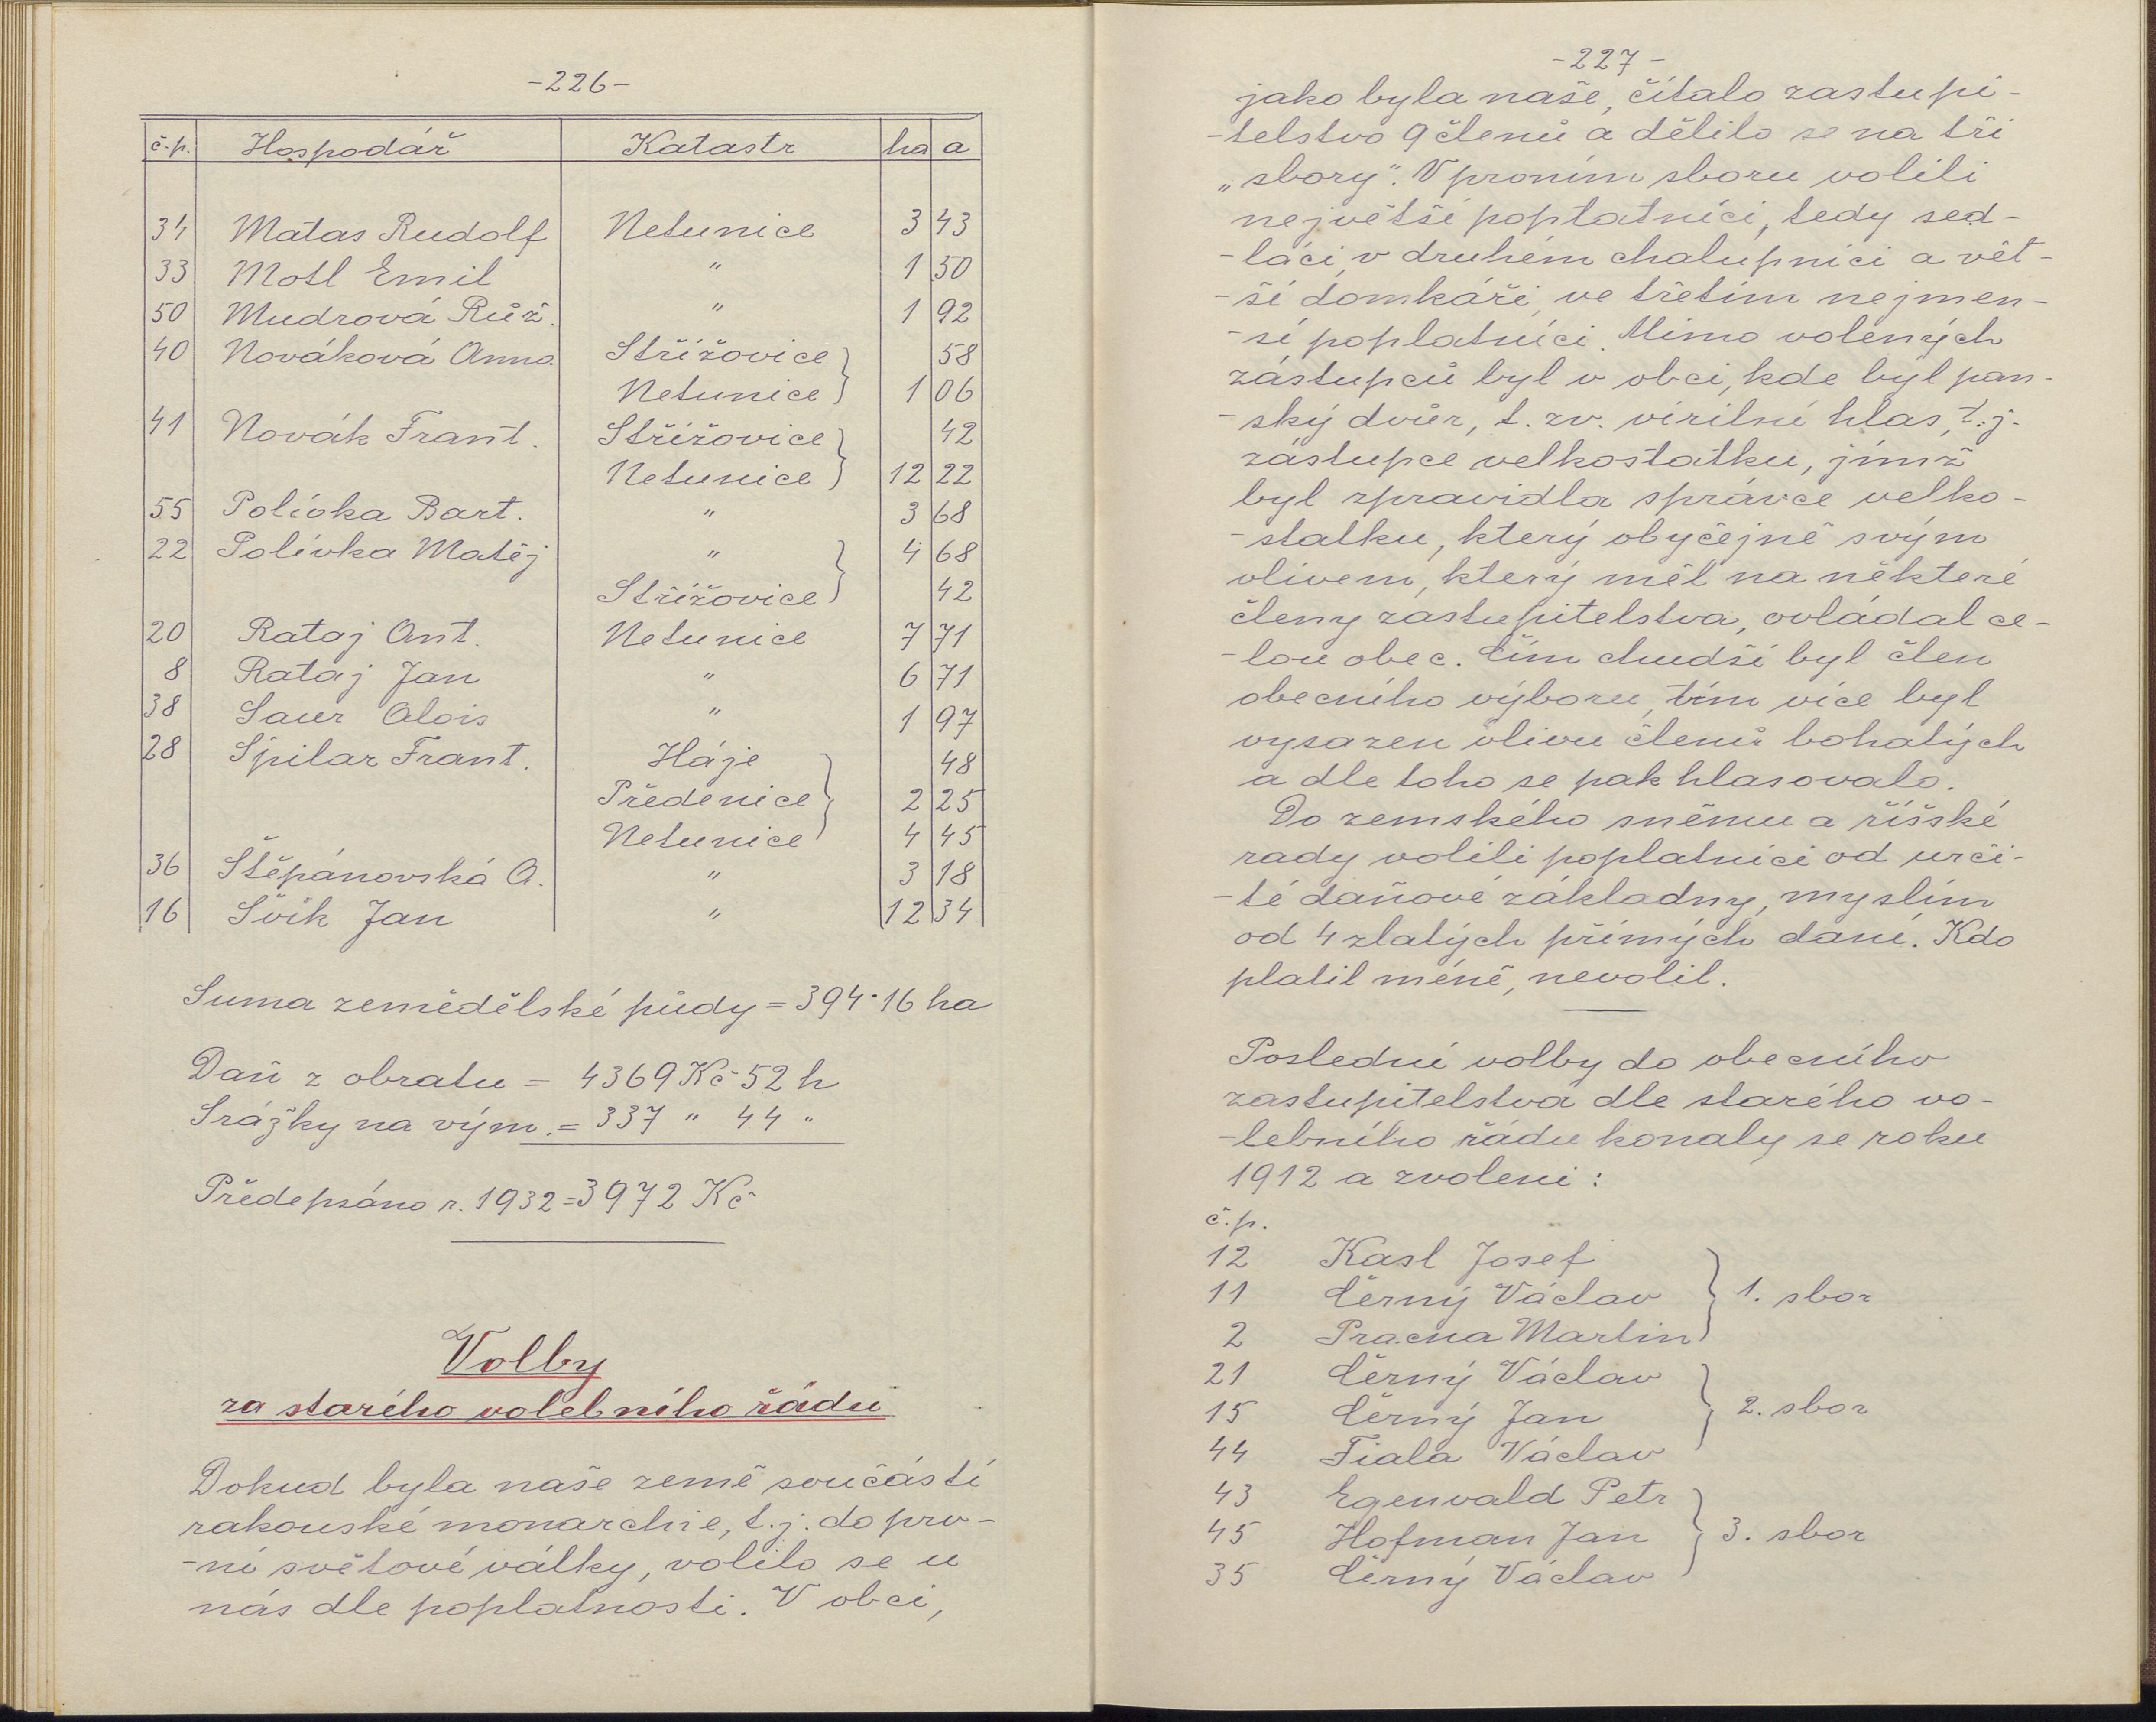 -226-
č.p. Hospodář Katastr ha a
34 Matas Rudolf Netunice 3 43
33 Motl Emil " 1 50
50 Mudrová Růž. " 1 92
40 Nováková Anna Střížovice } 58
Netunice } 1 06
41 Novák Frant. Střížovice } 42
Netunice } 12 22
55 Polívka Bart. " 3 68
22 Polívka Matěj " } 4 68
Střížovice } 42
20 Rataj Ant. Netunice 7 71
8 Rataj Jan " 6 71
38 Saur Alois " 1 97
28 Špilar Frant. Háje } 48
Předenice } 2 25
Netunice } 4 45
36 Štěpánovská A. " 3 18
16 Švík Jan " 12 34
Suma zemědělské půdy = 394·16 ha
Daň z obratu = 4369 Kč 52 h
Srážky na vým. = 337 " 44 "
Předepsáno r. 1932 = 3972 Kč
Volby
za starého volebního řádu
Dokud byla naše země součástí
rakouské monarchie, t.j. do prv-
-ní světové války, volilo se u
nás dle poplatnosti. V obci,
-227-
jako byla naše, čítalo zastupi-
-telstvo 9 členů a dělilo se na tři
„sbory". V prvním sboru volili
největší poplatníci, tedy sed-
-láci, v druhém chalupníci a vět-
-ší domkáři, ve třetím nejmen-
-ší poplatníci. Mimo volených
zástupců byl v obci, kde byl pan-
-ský dvůr, t. zv. virilní hlas, t.j.
zástupce velkostatku, jímž
byl zpravidla správce velko-
-statku, který obyčejně svým
vlivem, který měl na některé
členy zastupitelstva, ovládal ce-
-lou obec. Čím chudší byl člen
obecního výboru, tím více byl
vysazen vlivu členů bohatých
a dle toho se pak hlasovalo.
Do zemského sněmu a říšské
rady volili poplatníci od urči-
-té daňové základny, myslím
od 4 zlatých přímých daní. Kdo
platil méně, nevolil.
Poslední volby do obecního
zastupitelstva dle starého vo-
-lebního řádu konaly se roku
1912 a zvoleni :
č.p.
12 Kasl Josef
11 Černý Václav } 1. sbor
2 Pracna Martin
21 Černý Václav
15 Černý Jan } 2. sbor
44 Fiala Václav
43 Egenvald Petr
45 Hofman Jan } 3. sbor
35 Černý Václav